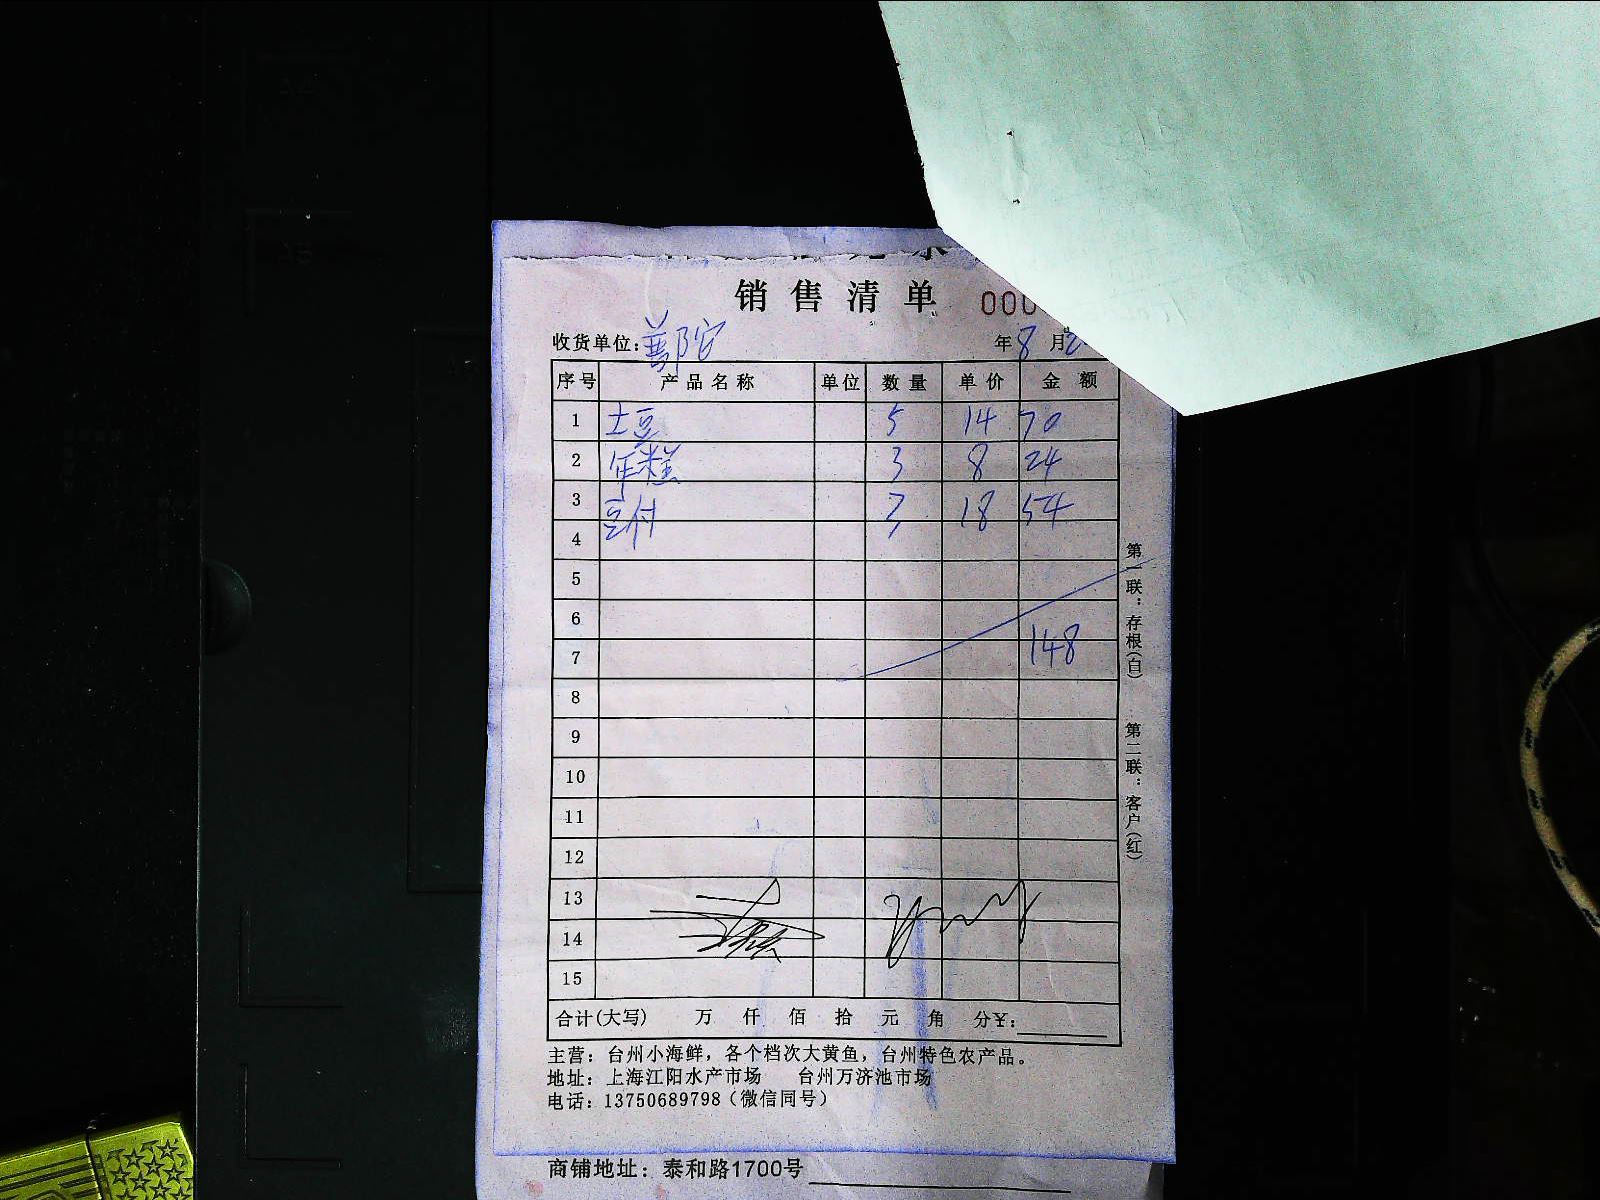 销售清单 000
收货单位：普陀 年8月2
序号 产品名称 单位 数量 单价 金额
1 土豆 5 14 70
2 年糕 3 8 24
3 豆付 3 18 54
4
5
6
7 148
8
9
10
11
12
13
14
15
合计(大写) 万 仟 佰 拾 元 角 分¥：
主营：台州小海鲜，各个档次大黄鱼，台州特色农产品。
地址：上海江阳水产市场 台州万济池市场
电话：13750689798（微信同号）
商铺地址：泰和路1700号
第一联：存根(白)
第二联：客户(红)